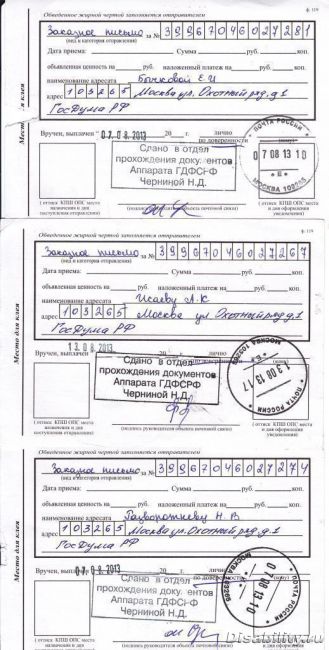 Обведенное жирной чертой заполняется отправителем
ф. 119
Заказное письмо за № 39967046027281
(вид и категория отправления)
Дата приема: Сумма руб. коп.
объявленная ценность на руб. наложенный платеж на руб. коп.
наименование адресата Бычковой Е.И
103265 Москва ул. Охотный ряд, д 1
ГосДума РФ
Место для клея
(кому)
Вручен, выплачен 07. 08. 2013 20 г. лично
по доверенности
Сдано в отдел
прохождения документов
Аппарата ГДФСРФ
Черниной Н.Д.
ПОЧТА РОССИИ
07 08 13 10
МОСКВА 103265
(оттиск КПШ ОПС места
назначения и дня
поступления отправления)
(подпись руководителя объекта почтовой связи)
(оттиск КПШ ОПС места
и дня оформления
уведомления)
Обведенное жирной чертой заполняется отправителем
ф. 119
Заказное письмо за № 39967046027267
(вид и категория отправления)
Дата приема: Сумма руб. коп.
объявленная ценность на руб. наложенный платеж на руб. коп.
наименование адресата Исаеву А.К
103265 Москва ул Охотный ряд, д 1
ГосДума РФ
Место для клея
Вручен, выплачен 13 0 8. 2013 20 г. лично
Сдано в отдел
прохождения документов
Аппарата ГДФСРФ
Черниной Н.Д.
МОСКВА 103265
13 08 13 17
ПОЧТА РОССИИ
(оттиск КПШ ОПС места
назначения и дня
поступления отправления)
(подпись руководителя объекта почтовой связи)
(оттиск КПШ ОПС места
и дня оформления
уведомления)
Обведенное жирной чертой заполняется отправителем
ф. 119
Заказное письмо за № 39967046027274
(вид и категория отправления)
Дата приема: Сумма руб. коп.
объявленная ценность на руб. наложенный платеж на руб. коп.
наименование адресата Н. В
103265 Москва ул. Охотный ряд, д 1
ГосДума РФ
Место для клея
(кому)
Вручен, выплачен 07 0 8. 2013 20 г. лично
Сдано в отдел
прохождения документов
Аппарата ГДФСРФ
Черниной Н.Д.
08 13 10
ПОЧТА РОССИИ
(оттиск КПШ ОПС места
назначения и дня
поступления отправления)
(подпись руководителя объекта почтовой связи)
Disability.ru